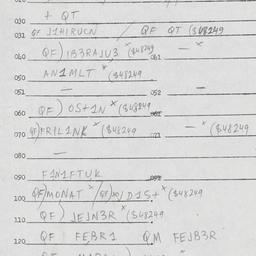 + QT
030
031 QF J1HIRUCN / QF QT ($48249
040 QF) IB3RAJU3 × ($48249 041 — ×
050 AN1MLT × ($48249
051 — 052 —
060 QF) OST1N × ($48249 061
070 QF) FRIL1NK × ($48249 071 — × ($48249
080 —
090 F1N1FTUK
100 QF) MONAT × / QF) D1S+ × ($48249
110 QF) JEJN3R × ($48249
120 QF FEBR1 QM FEJB3R